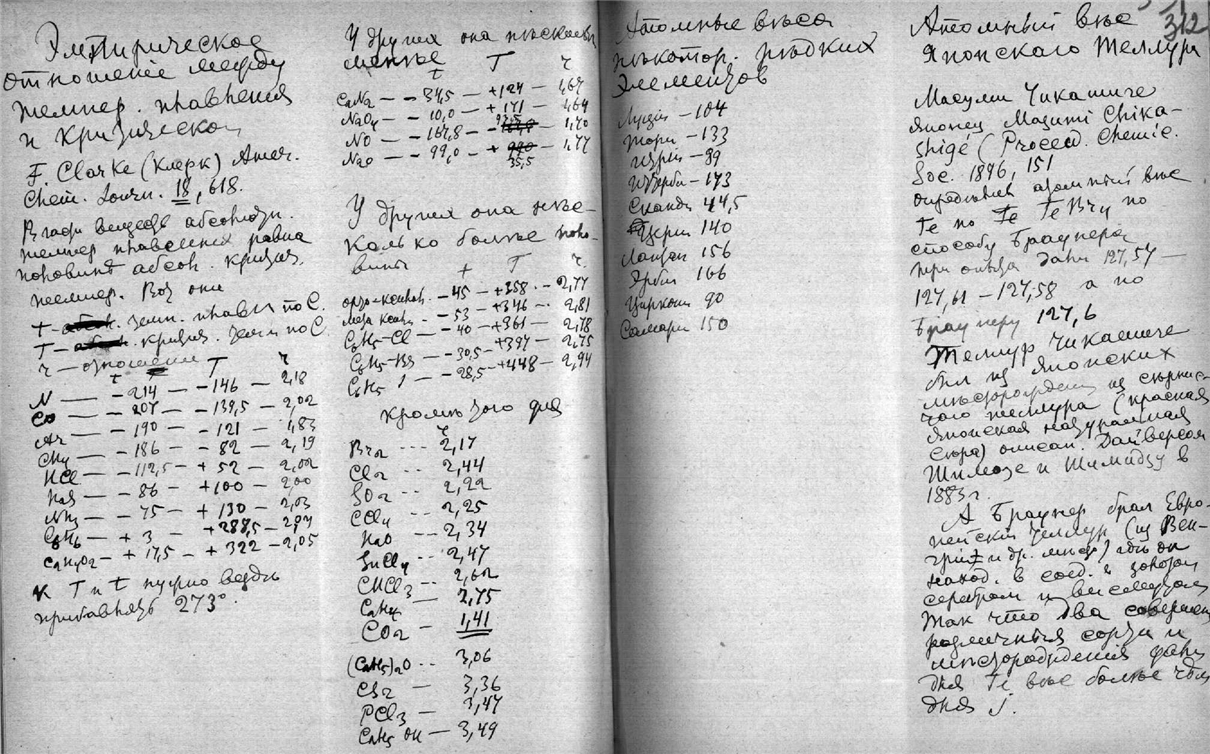 Эмпирическое
отношеніе между
темпер. плавленія
и критической
F. Clarke (Кларк) Amer.
Chem. Journ. 18, 618.
В ряде веществ абсолютн.
темпер плавленія равна
половинѣ абсол. критич.
темпер. Вот они
t — темп. плавл по C.
T — критич. темп по C
r — отношеніе
t T r
N — -214 — -146 — 2,18
CO — -207 — -139,5 — 2,02
Ar — -190 — -121 — 1,83
CH4 — -186 — -82 — 2,19
HCl — -112,5 — +52 — 2,02
H2S — -86 — +100 — 2,00
NH3 — -75 — +130 — 2,03
C6H6 — +3 — +288,5 — 2,04
C2H4O2 — +17,5 — +322 — 2,05
К T и t нужно вездѣ
прибавлять 273°.
У других она нѣсколько
менѣе
t T r
C2N2 — -34,5 — +124 — 1,67
N2O4 — -10,0 — +171 — 1,69
NO — -167,8 — 93,5 — 1,70
N2O — -99,0 — + 35,5 — 1,77
У других она нѣс-
колько болѣе поло-
вины
t T r
-45 — +358 — 2,77
-53 — +346 — 2,81
C6H5-Cl — -40 — +361 — 2,78
C6H5-Br — -30,5 — +397 — 2,75
C6H5 I — -28,5 — +448 — 2,94
Кромѣ того для
r
Br2 — 2,17
Cl2 — 2,44
SO2 — 2,22
CCl4 — 2,25
H2O — 2,34
SnCl4 — 2,47
CHCl3 — 2,62
C2H4 — 2,75
CO2 — 1,41
(C2H5)2O — 3,06
CS2 — 3,36
PCl3 — 3,47
C2H5 OH — 3,49
Атомные вѣса
нѣкотор. рѣдких
Элементов
104
Тори — 133
Иттри — 89
Иттерби — 173
Сканди 44,5
Цери 140
156
Эрби — 166
Циркони 90
Самари 150
312
Атомный вѣс
Японскаго Теллура
Масуми Чикашиге
японец Masumi Chika-
shige (Proceed. Chemic.
Soc. 1896, 151
опредѣлил атомный вѣс
Te по
способу Браунера
три опыта дали 127,57 —
127,61 — 127,58 а по
Браунеру 127,6
Теллур Чикашиге
был из японских
мѣсторожденій из сѣрнис-
таго теллура (красная
японская натуральная
сѣра) описан. Дайверсом
Шимозе и Шимидзу в
1883 г.
А Браунер брал Евро-
пейскій теллур (из Вен-
гріи и др. мѣст) гдѣ он
наход. в соед. с золотом
серебром и висмутом
Так что два совершен
различныя сорта и
мѣсторожденія дали
для Te вѣс болѣе чѣм
для J.